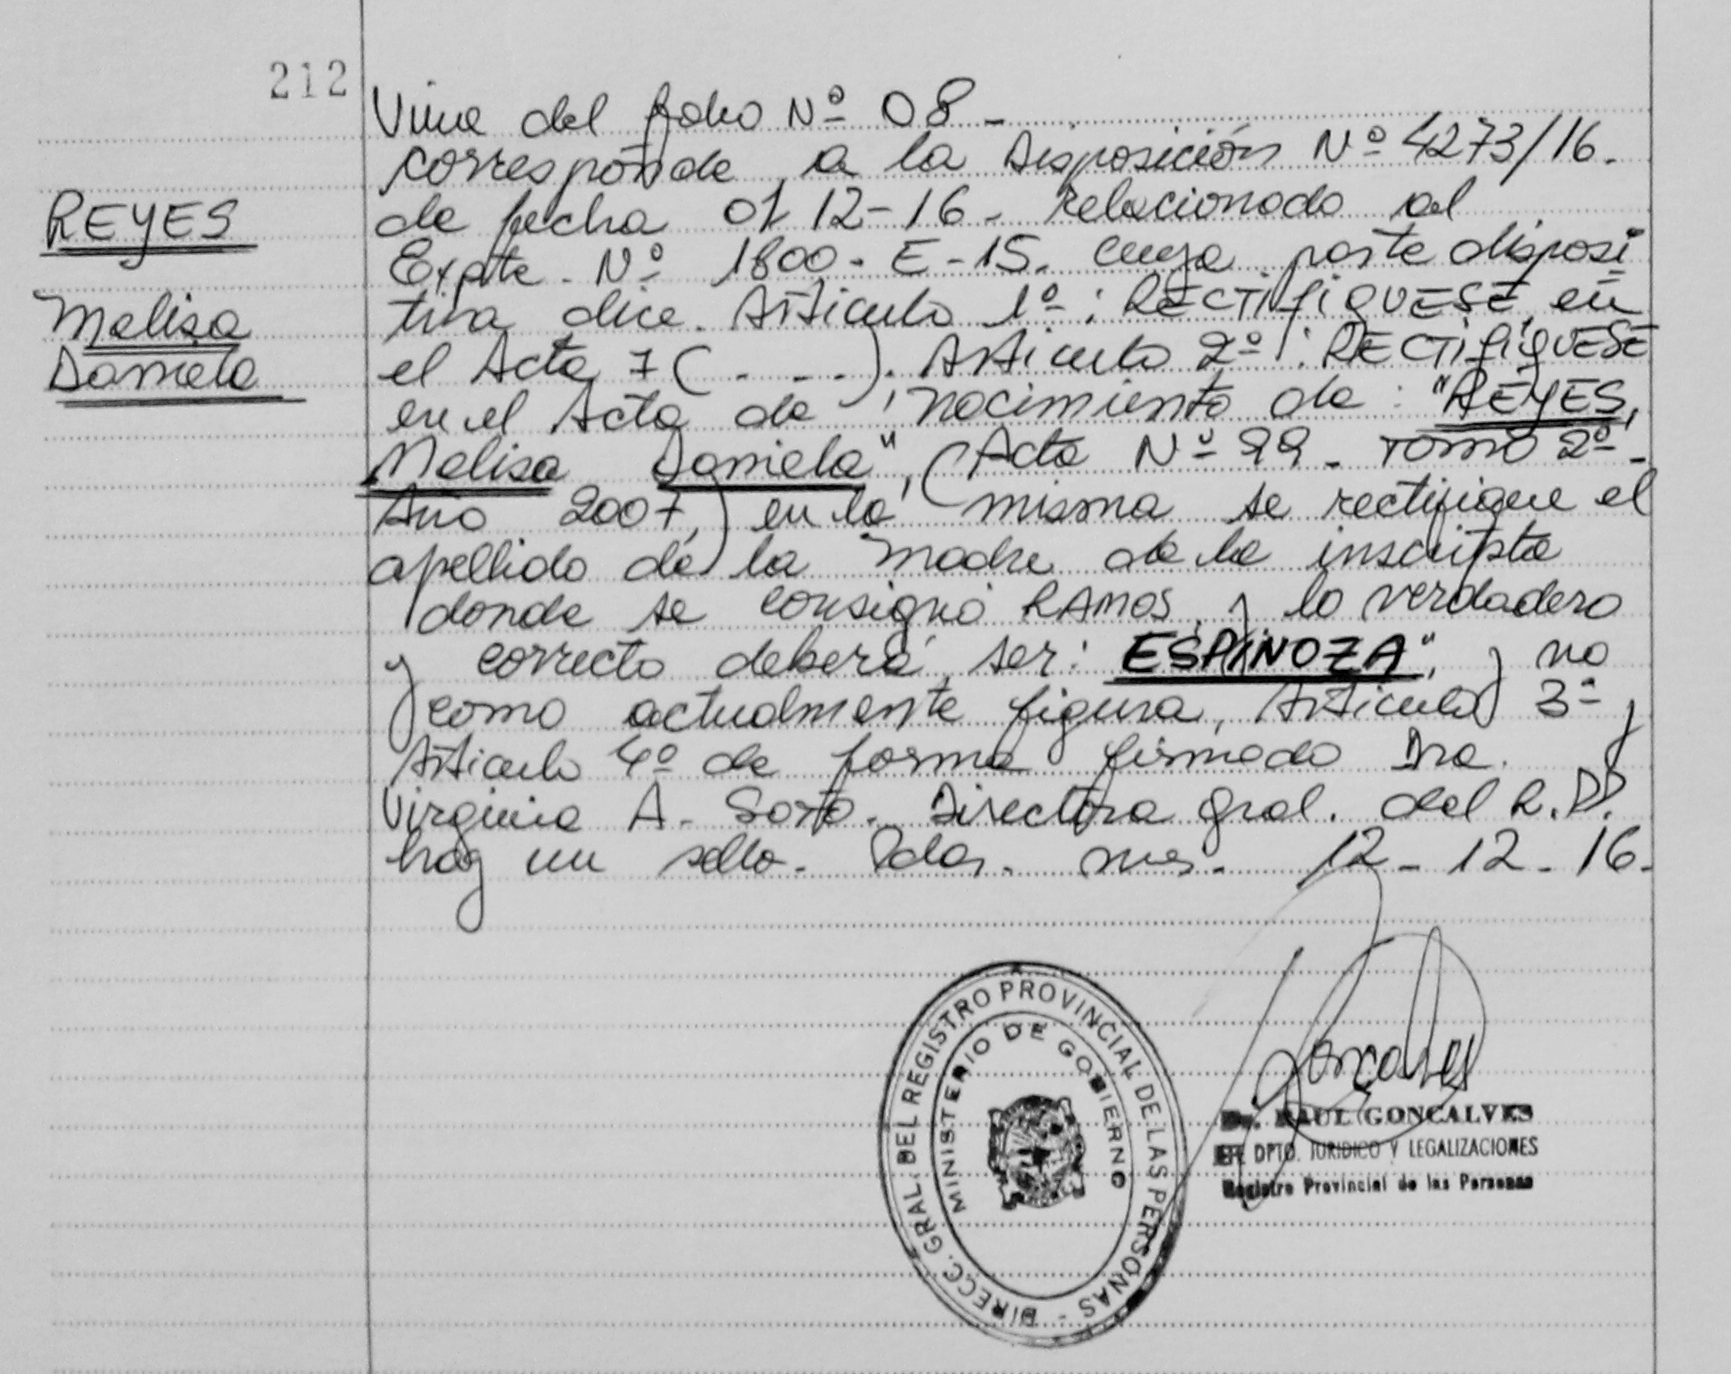 212
Viene del folio Nº 08 -
corresponde a la Disposición Nº 4273/16.
de fecha 01 12-16 - relacionado al
REYES
Expte. Nº 1800 - E - 15. cuya parte disposi
tiva dice. Articulo 1º: RECTIFIQUESE, en
Melisa
Daniela
el Acta 7 (. _ _.). Articulo 2º: RECTIFIQUESE
en el Acta de nacimiento de: "REYES,
Melisa Daniela", (Acta Nº 99 - Tomo 2º -
Año 2007,) en la misma se rectifique el
apellido de la madre de la inscripta
donde se consignó RAMOS, y lo verdadero
y correcto deberá ser: ESPINOZA", y no
como actualmente figura, Articulo 3º y
Articulo 4º de forma firmado Dra.
Virginia A. Soto. Directora Gral. del R.PP.
hay un sello. Pdas. mes. 12 - 12 - 16.
DIRECC. GRAL. DEL REGISTRO PROVINCIAL DE LAS PERSONAS -
MINISTERIO DE GOBIERNO
Goncalves
Dr. RAUL GONCALVES
DPTO. JURIDICO Y LEGALIZACIONES
Registro Provincial de las Personas